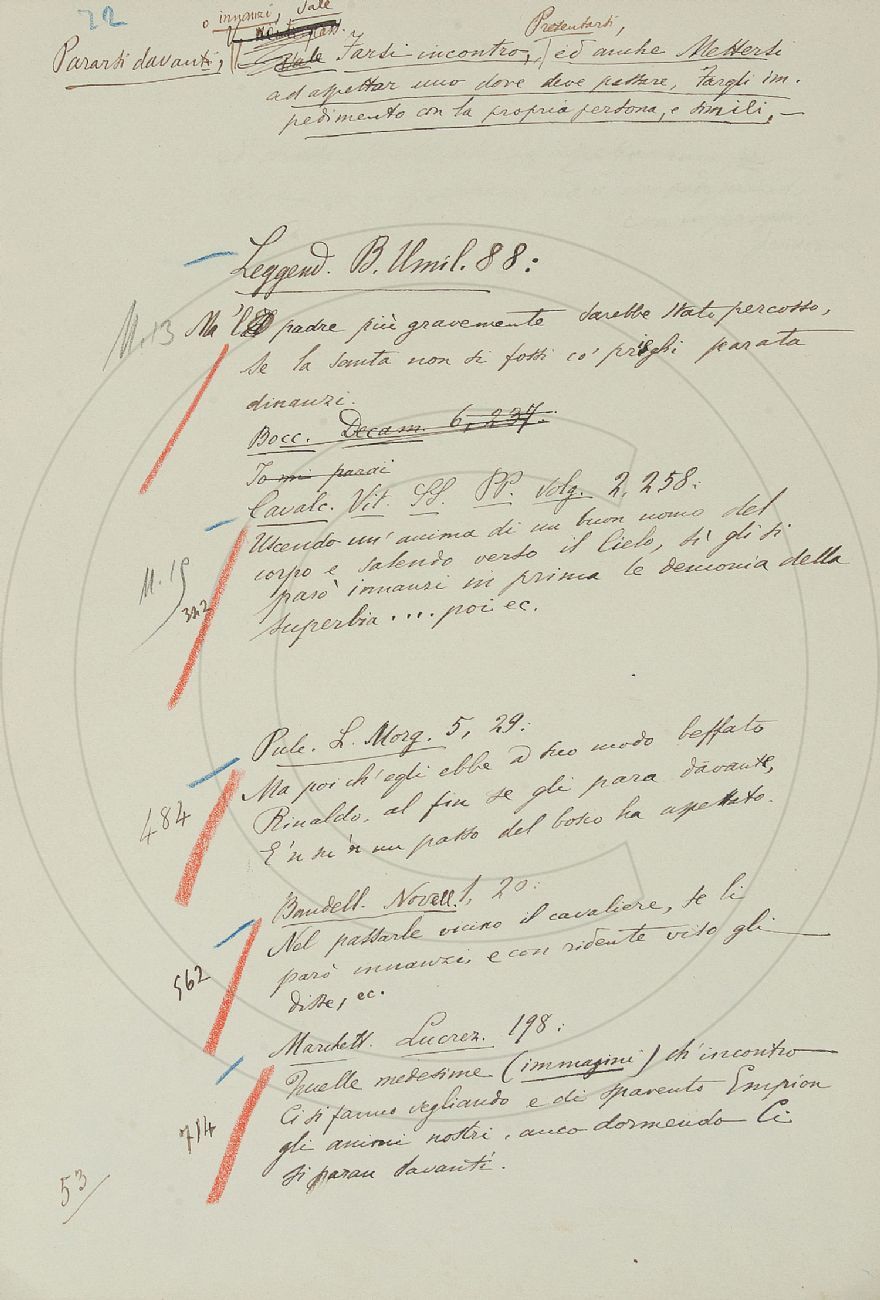 22
o innanzi, vale
Pararsi davanti, vale Farsi incontro, Presentarsi, ed anche Mettersi
ad aspettar uno dove deve passare, Fargli im-
pedimento con la propria persona, e simili, –
Leggend. B. Umil. 88:
M. 13
Ma 'l padre più gravemente sarebbe stato percosso,
se la santa non si fossi co' prieghi parata
dinanzi.
Bocc. Decam. 6, 237.
Io mi parai
Cavalc. Vit. SS. PP. volg. 2, 258:
M. 19
Uscendo un' anima di un buon uomo del
corpo e salendo verso il Cielo, sì gli si
parò innanzi in prima le demonia della
342
superbia .... poi ec.
Pulc. L. Morg. 5, 29:
Ma poi ch' egli ebbe a suo modo beffato
484
Rinaldo, al fin se gli para davante,
E 'n su 'n un passo del bosco ha aspettato.
Bandell. Novell. 1, 20:
Nel passarle vicino il cavaliere, se li
562
parò innanzi, e con ridente viso gli
disse, ec.
Marchett. Lucrez. 198:
Quelle medesime (immagini) ch' incontro
Ci si fanno vegliando e di spavento Empion
714
gli animi nostri, anco dormendo Ci
si paran davanti.
53